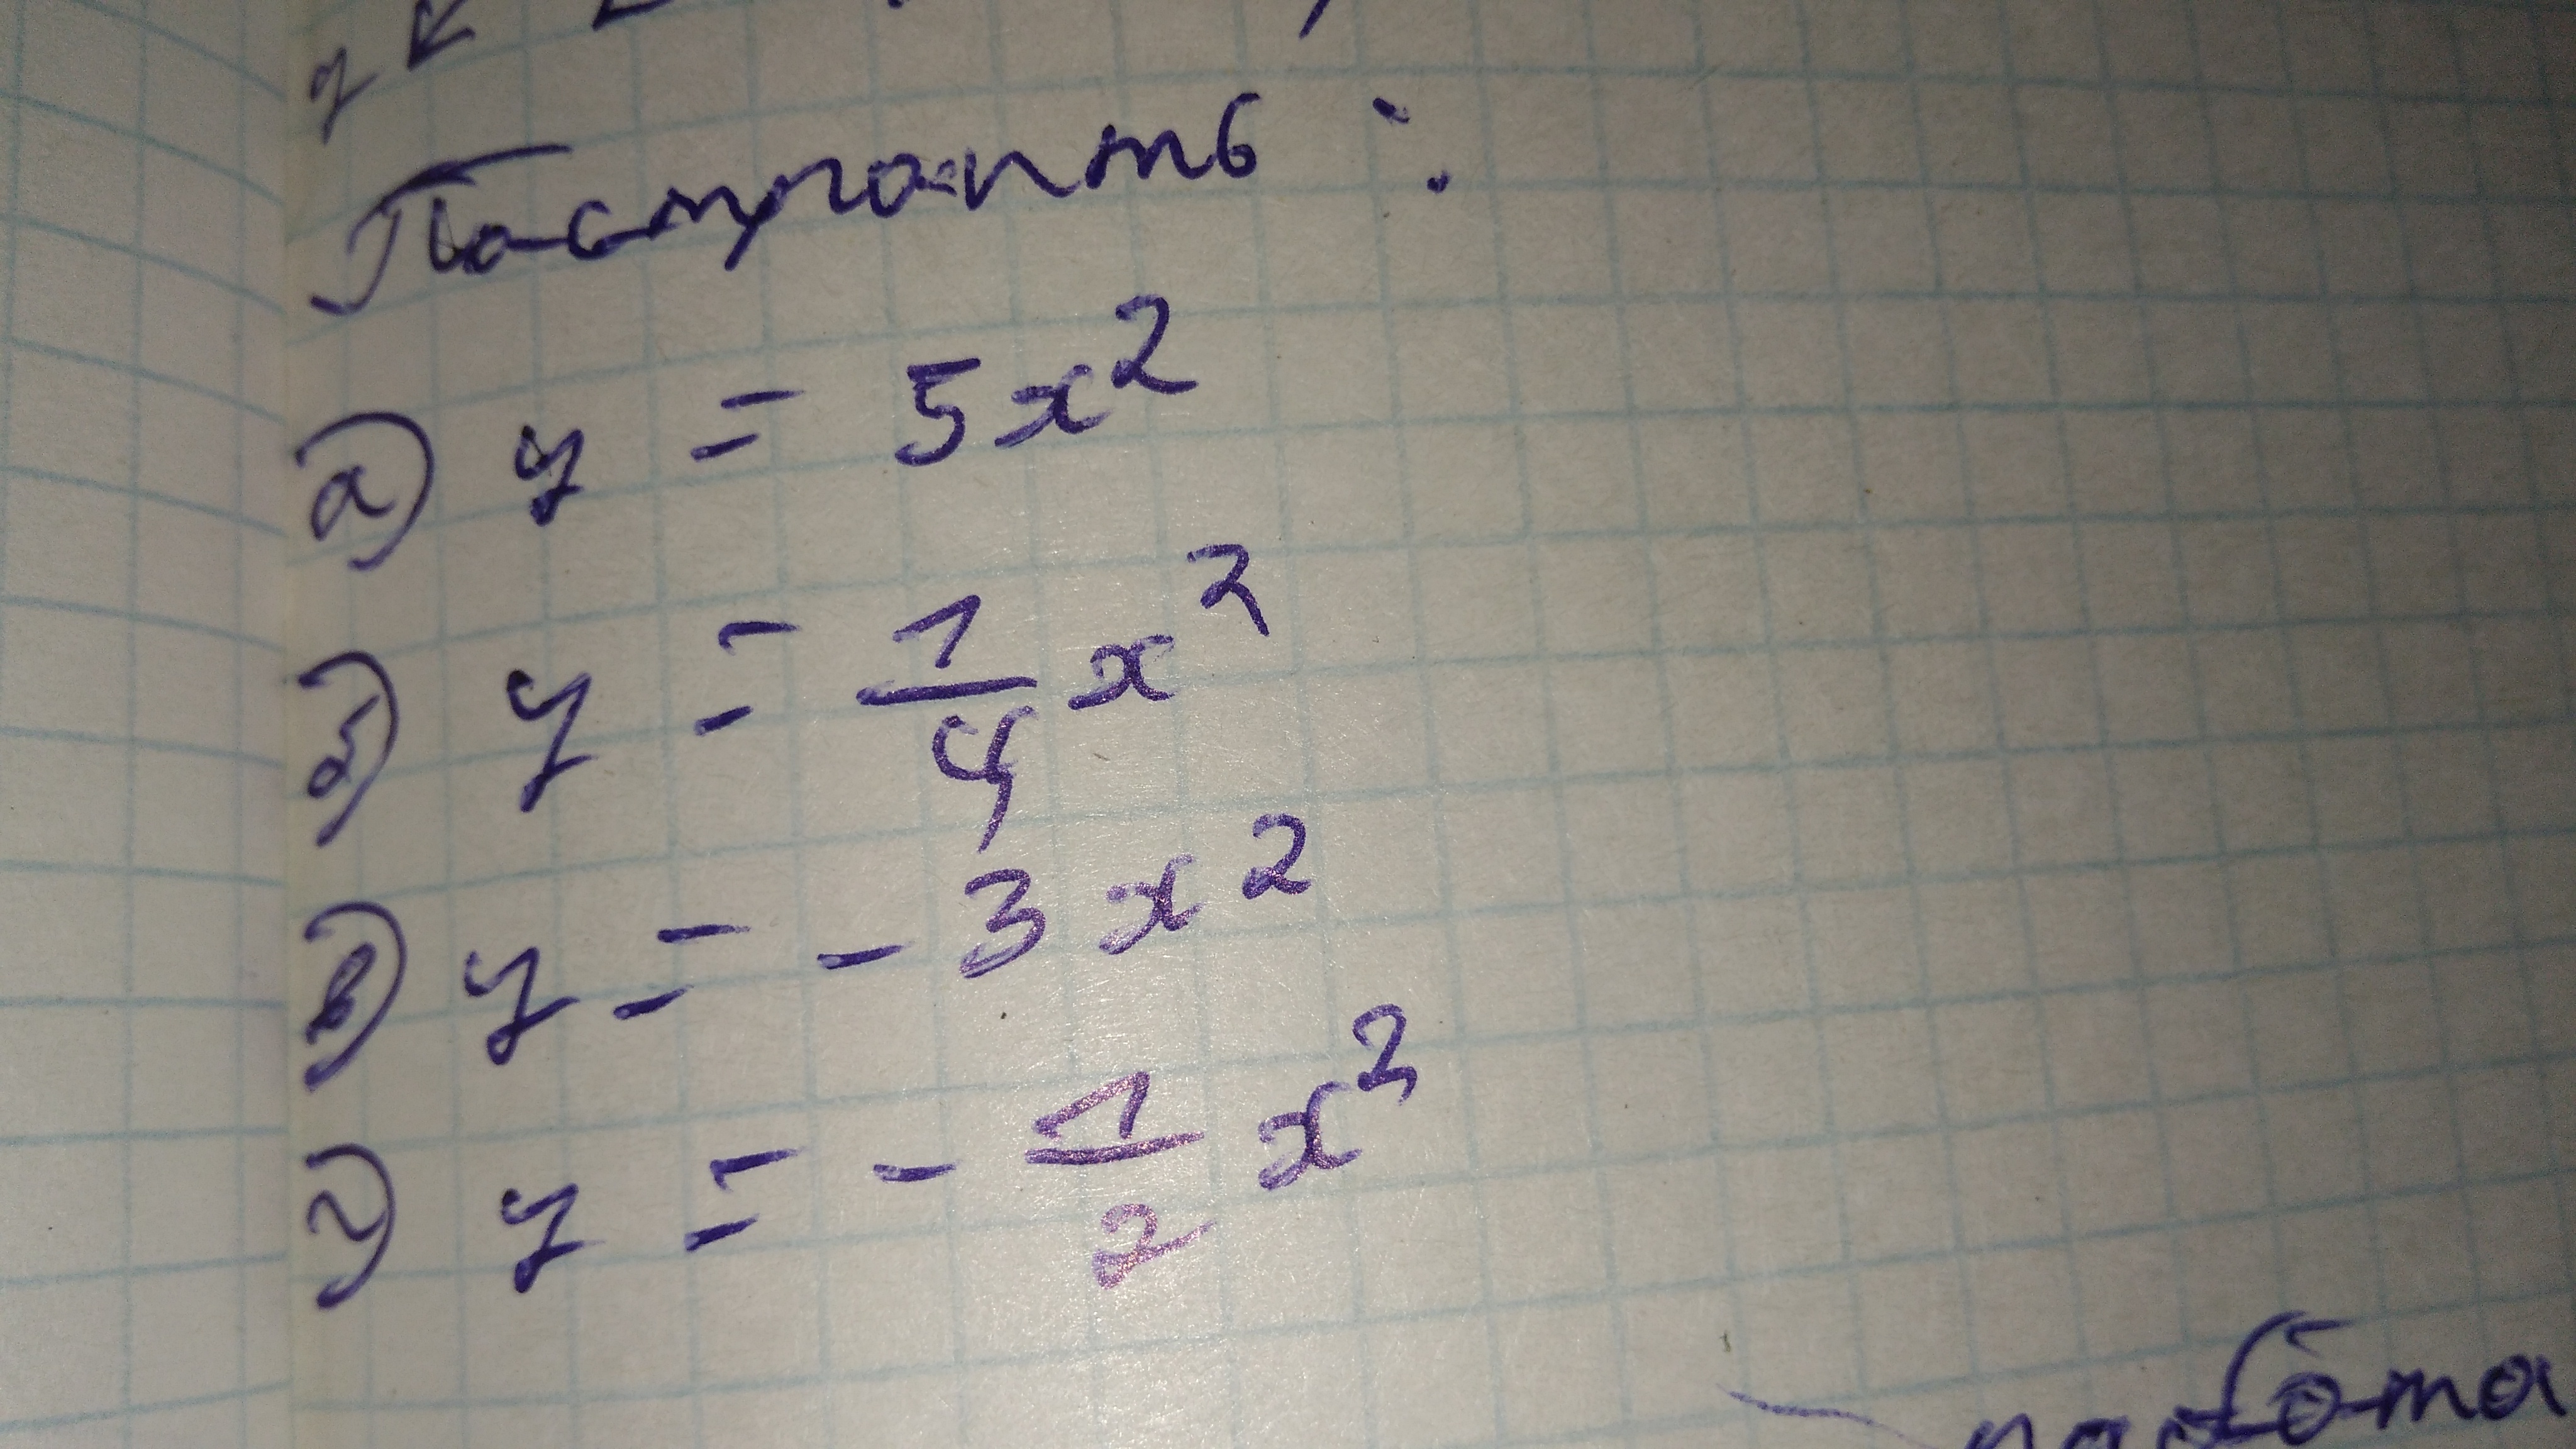 Построить:
а) y = 5x²
б) y = 1/4 x²
в) y = - 3x²
г) y = - 1/2 x²
работа